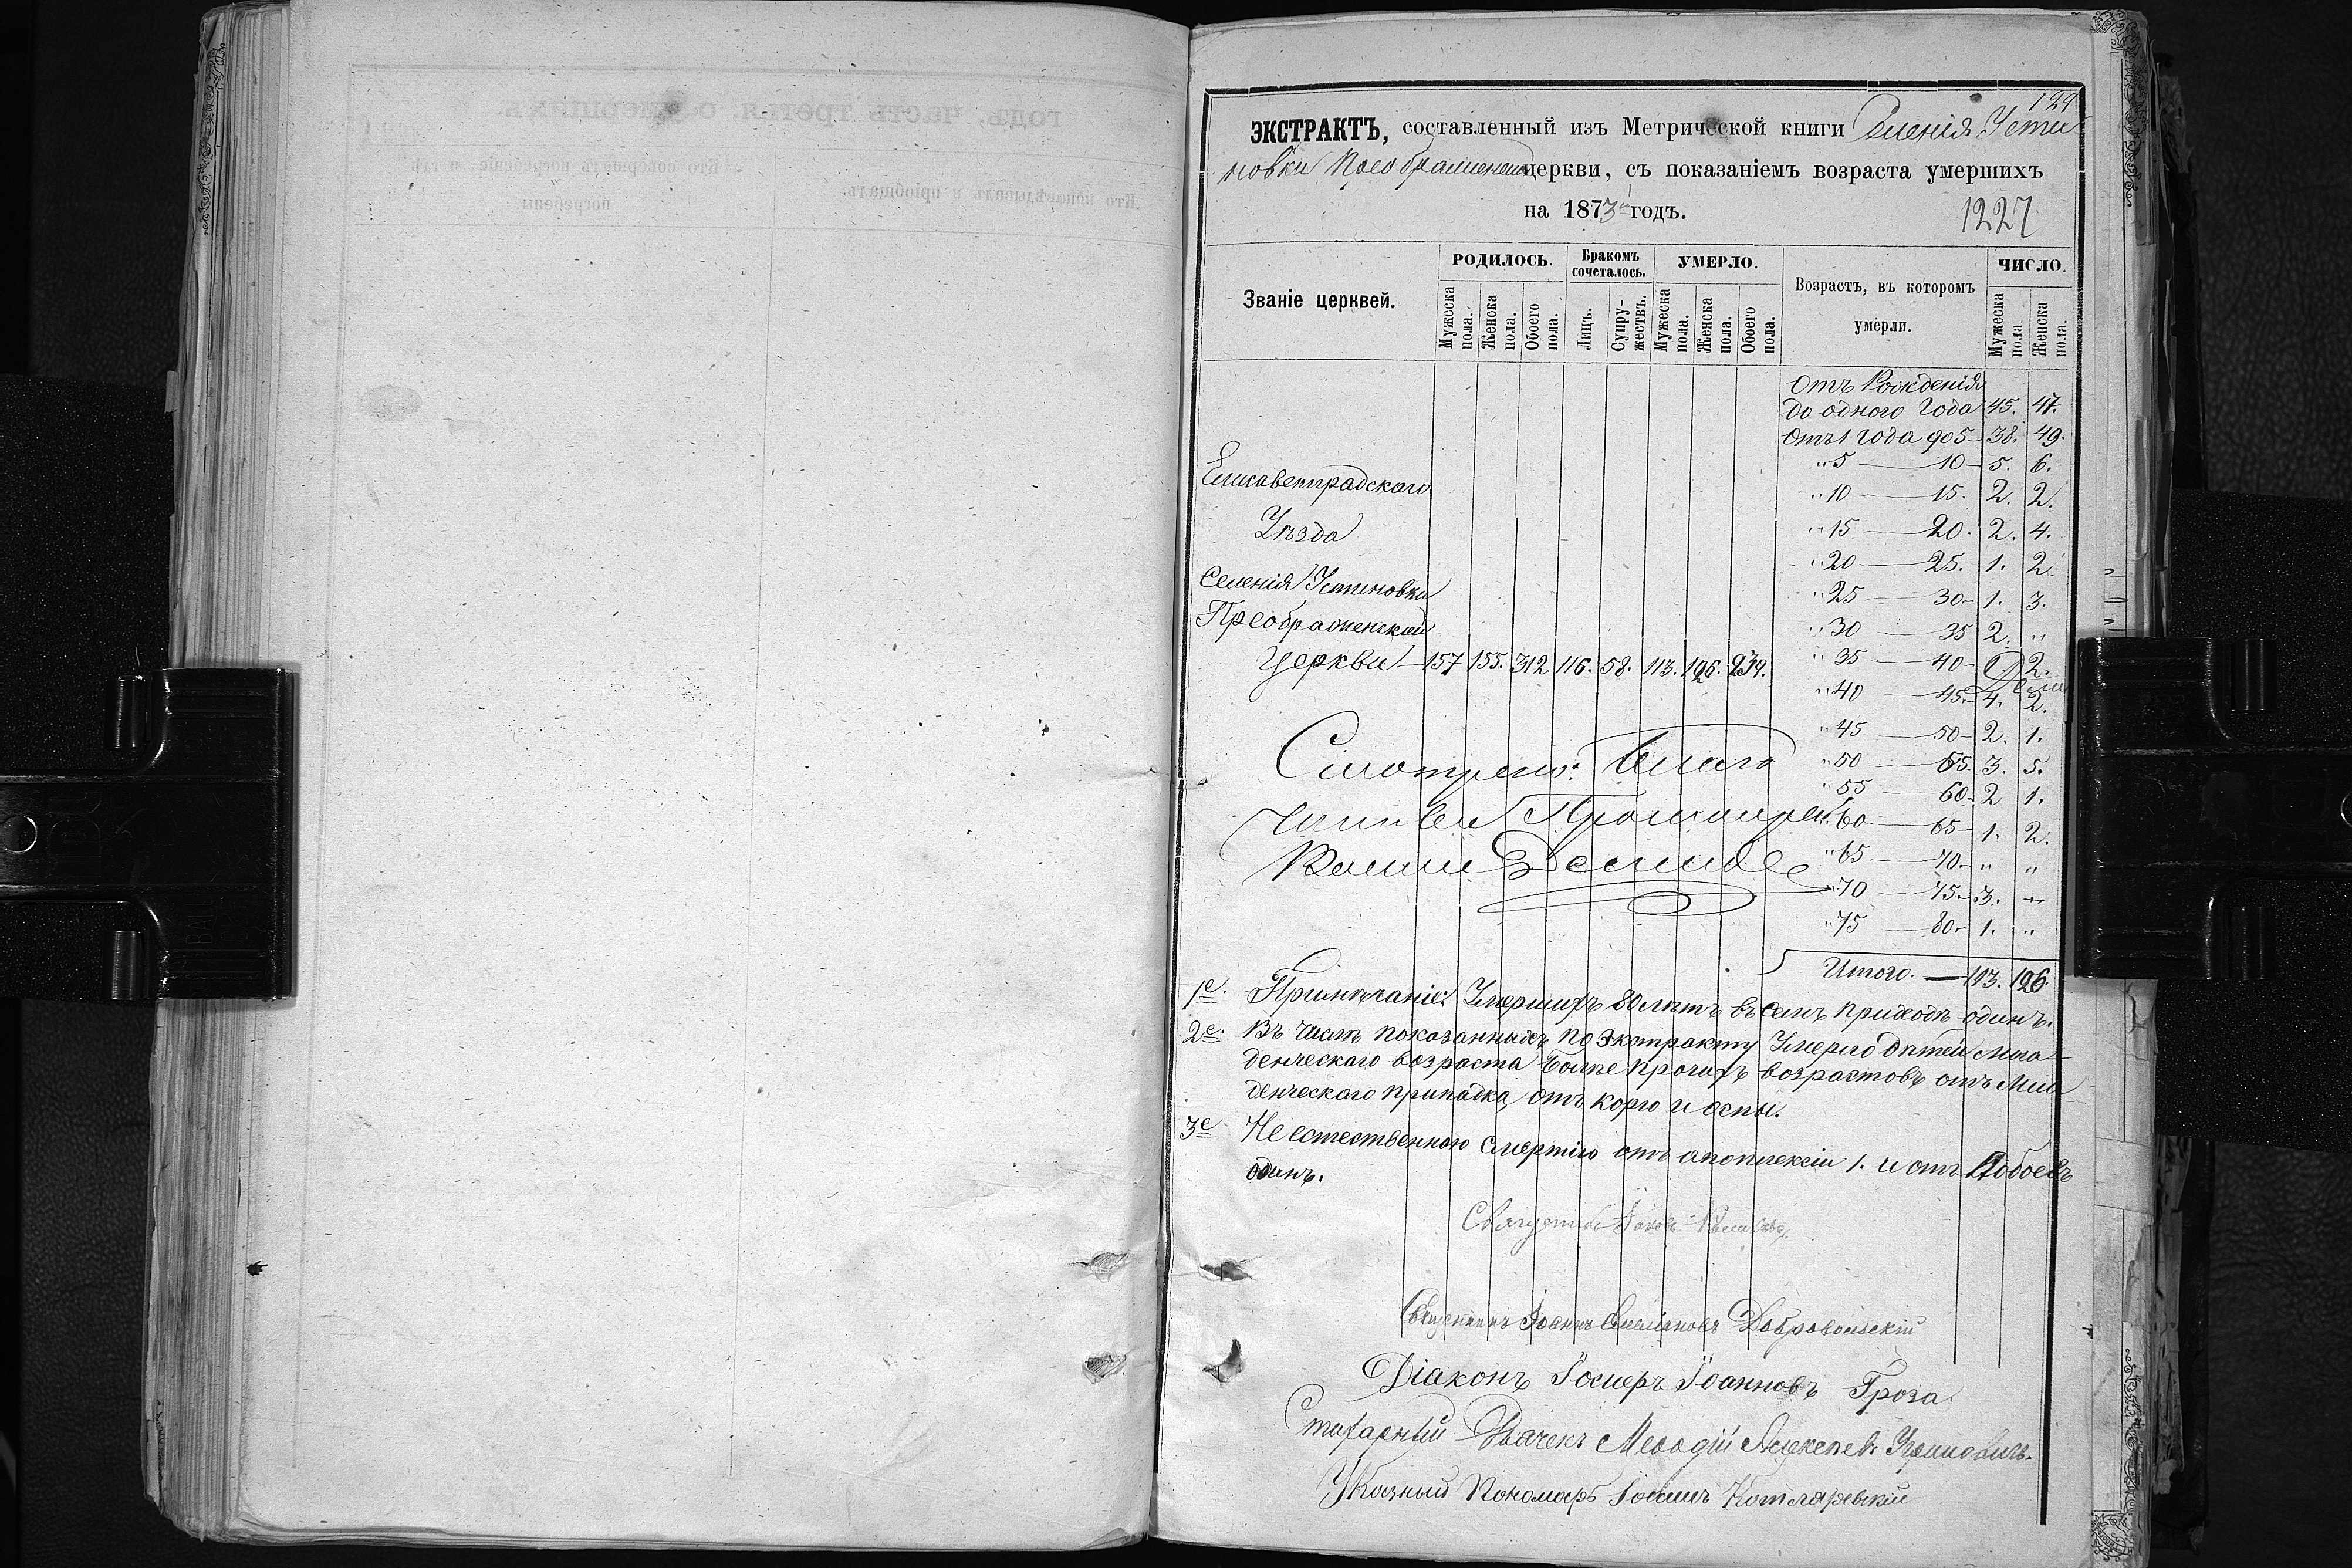 129
ЭКСТРАКТЪ, составленный изъ Метрической книги Селенія Усти
новки Преображенской церкви, съ показаніемъ возраста умершихъ
на 1873й годъ.
1227
Званіе церквей.
РОДИЛОСЬ.
Мужеска пола.
Женска пола.
Обоего пола.
Бракомъ сочеталось.
Лицъ.
Супружествъ.
УМЕРЛО.
Мужеска пола.
Женска пола.
Обоего пола.
Возрастъ, въ которомъ
умерли.
ЧИСЛО.
Мужеска пола.
Женска пола.
Отъ Рожденія
до одного Года 45. 47.
Отъ 1 Года до 5 — 38. 49.
" 5 — 10 — 5. 6.
" 10 — 15. 2. 2.
" 15 — 20. 2. 4.
" 20 — 25. 1. 2.
" 25 — 30 — 1. 3.
" 30 — 35 2. "
" 35 — 40 — 2.
" 40 — 45 — 4. 2.
" 45 — 50 — 2. 1.
" 50 — 55. 3. 5.
" 55 — 60 — 2 1.
" 60 — 65 — 1. 2.
" 65 — 70 — " "
" 70 — 75 — 3. "
" 75 — 80 — 1. "
Итого. — 113. 126.
Елисаветградскаго
Уѣзда
Селенія Устиновки
Преображенской
Церкви — 157 155. 312 116. 58. 113. 126. 239.
Смотрено: Благо
Протоіерей
1е. Примѣчаніе: Умершихъ 80 лѣтъ въ семъ приходѣ одинъ.
2е. Въ числѣ показанныхъ по экстракту Умерло дѣтей мла
денческаго возраста болѣе прочихъ возрастовъ отъ мла
денческаго припадка, отъ корю и оспы.
3е Не естественною смертію отъ апоплексіи 1. и отъ Побоевъ
одинъ.
Священникъ Іаковъ
Священникъ Іоаннъ Емеліановъ Добровольскій
Діаконъ Іосифъ Іоанновъ Гроза
Стихарный Дьячекъ Меѳодій Алексѣевъ
Указный Пономарь Іоаннъ Котляревскій